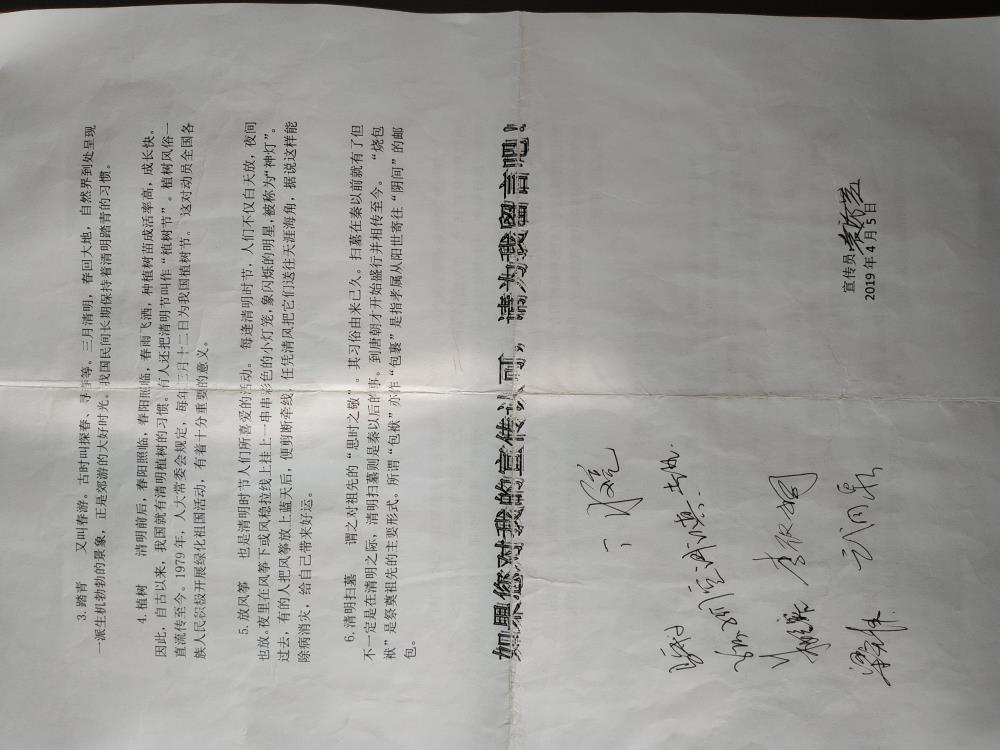 3. 踏青　又叫春游。古时叫探春、寻春等。三月清明，春回大地，自然界到处呈现
一派生机勃勃的景象，正是郊游的大好时光。我国民间长期保持着清明踏青的习惯。
4. 植树　清明前后，春阳照临，春阳照临，春雨飞洒，种植树苗成活率高，成长快。
因此，自古以来，我国就有清明植树的习惯。有人还把清明节叫作“植树节”。植树风俗一
直流传至今。1979年，人大常委会规定，每年三月十二日为我国植树节。这对动员全国各
族人民积极开展绿化祖国活动，有着十分重要的意义。
5. 放风筝　也是清明时节人们所喜爱的活动。每逢清明时节，人们不仅白天放，夜间
也放。夜里在风筝下或风稳拉线上挂上一串串彩色的小灯笼，象闪烁的明星，被称为“神灯”。
过去，有的人把风筝放上蓝天后，便剪断牵线，任凭清风把它们送往天涯海角，据说这样能
除病消灾，给自己带来好运。
6. 清明扫墓　谓之对祖先的“思时之敬”。其习俗由来已久。扫墓在秦以前就有了但
不一定是在清明之际，清明扫墓则是秦以后的事。到唐朝才开始盛行并相传至今。“烧包
袱”是祭奠祖先的主要形式。所谓“包袱”亦作“包裹”是指孝属从阳世寄往“阴间”的邮
包。
如果你对我的宣传认可，请为我留言吧！
宣传员
2019年4月5日